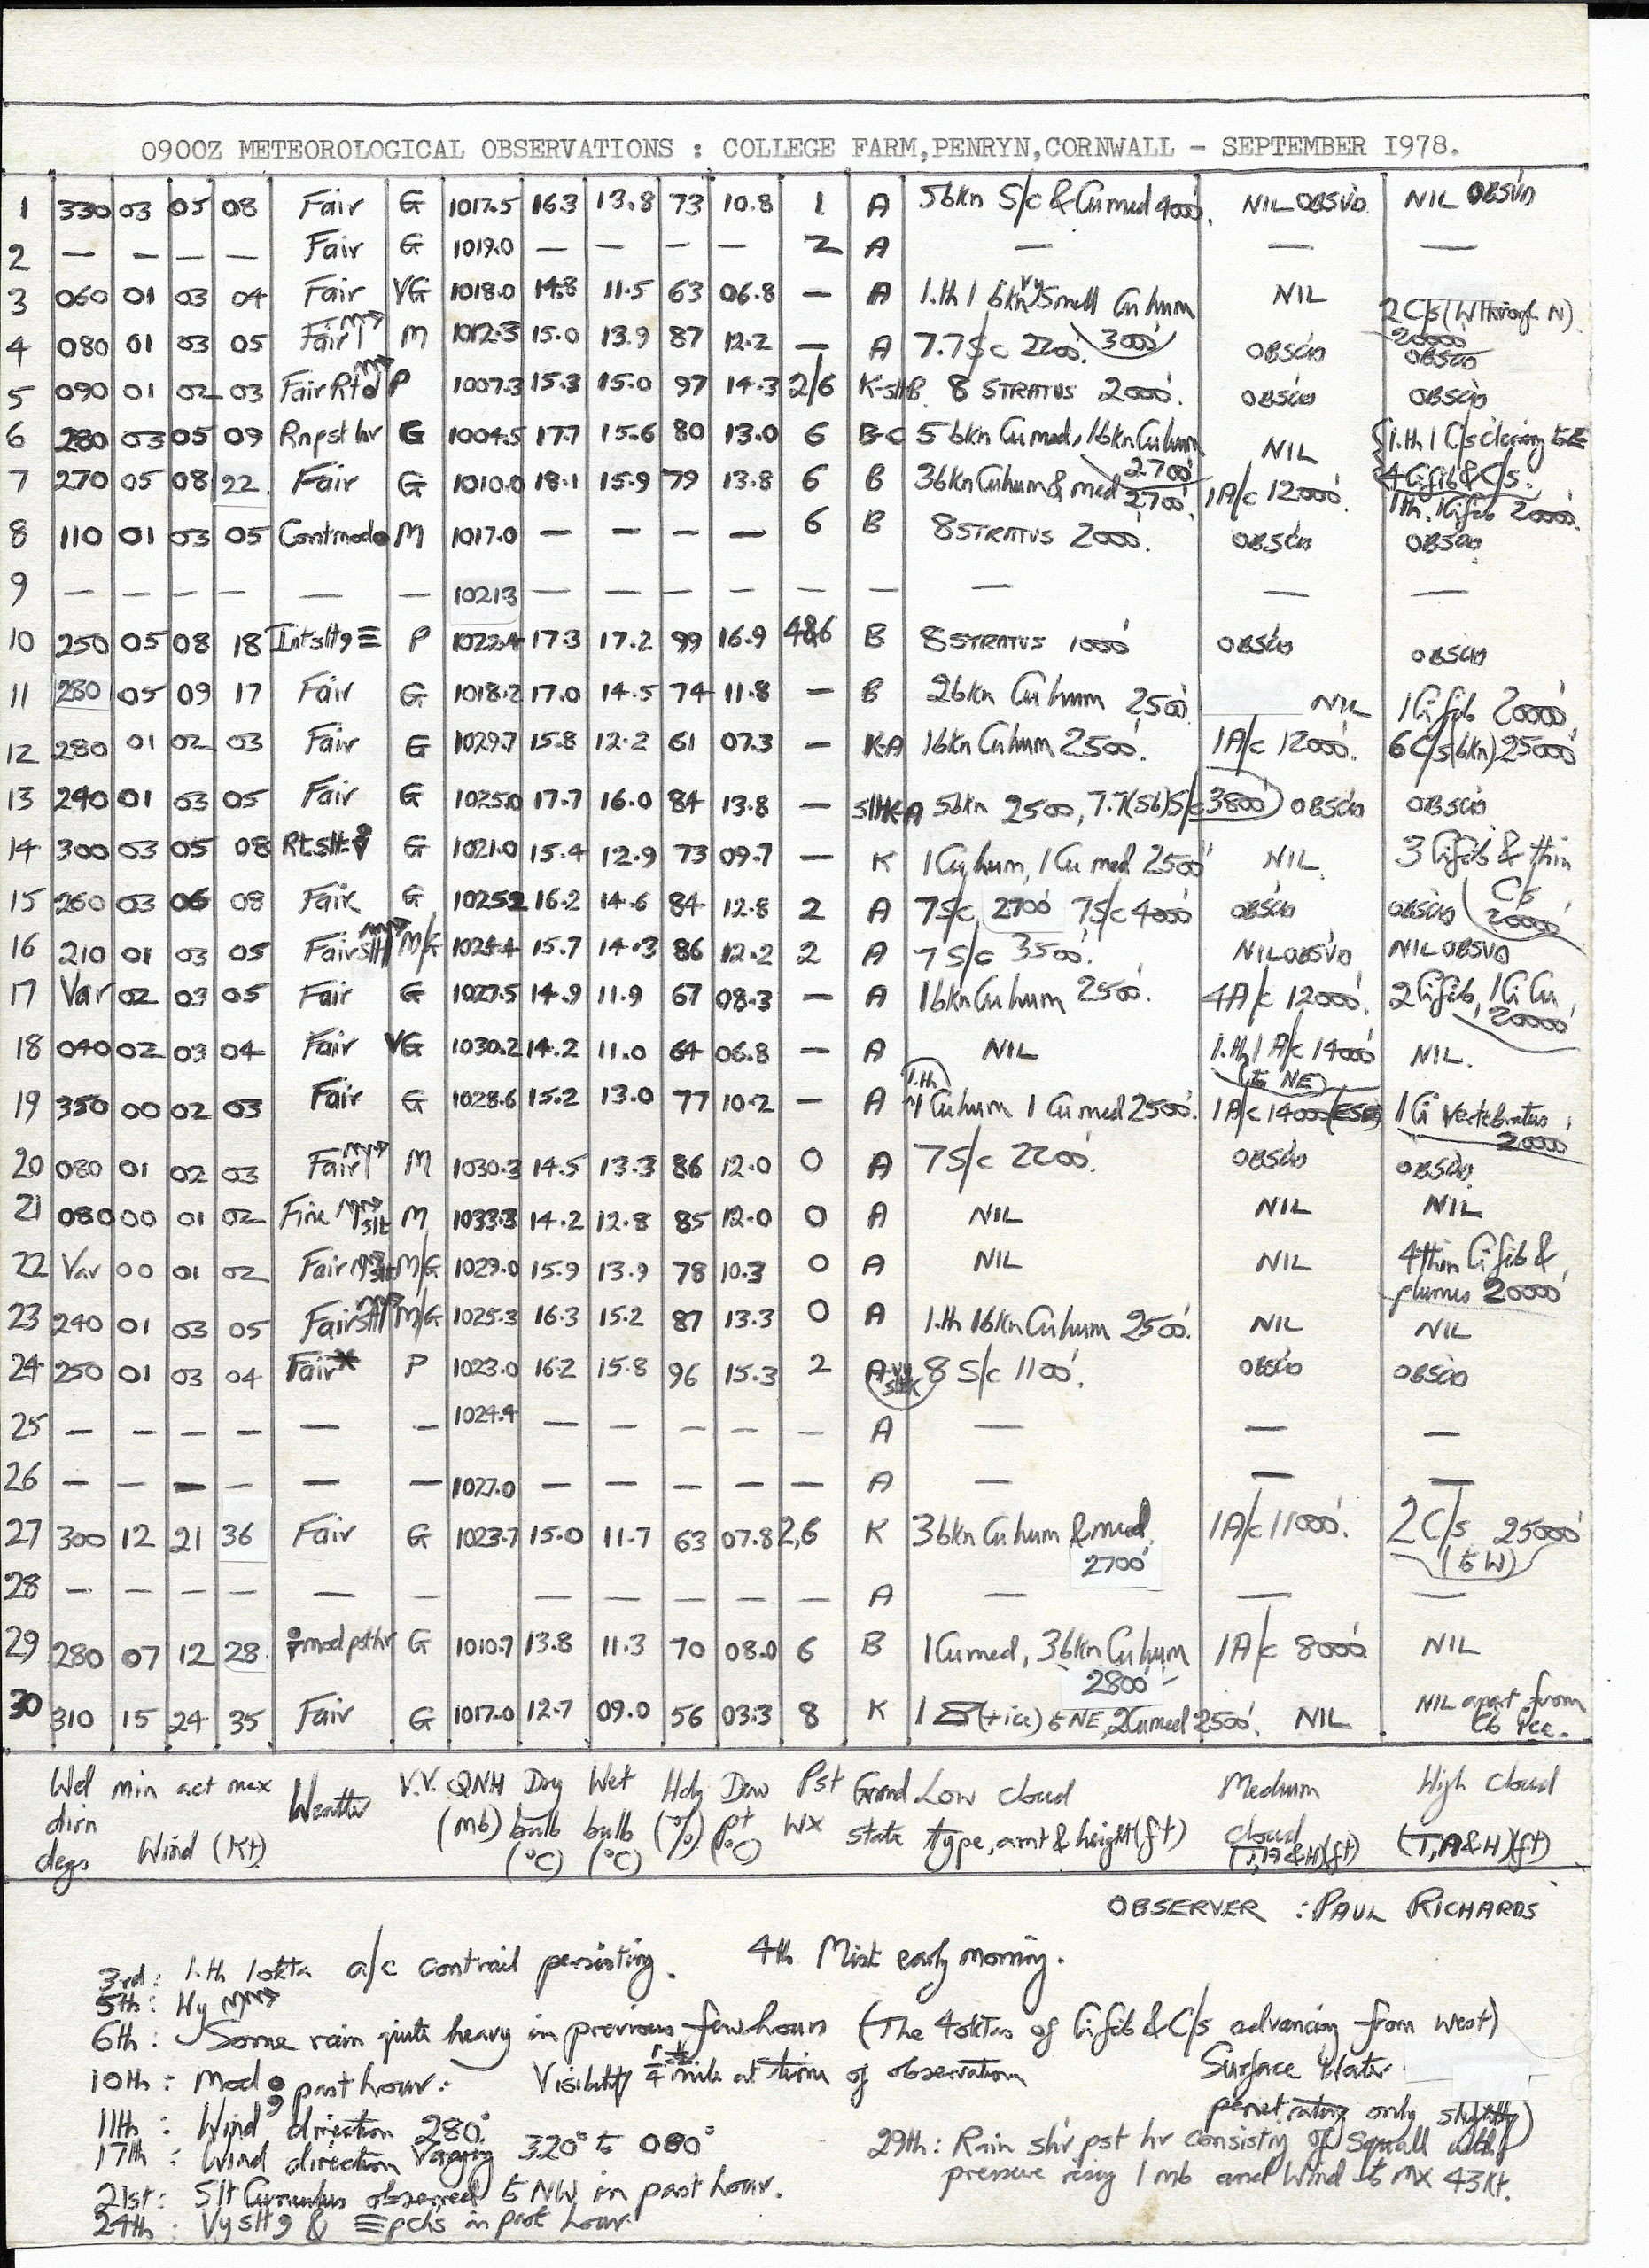 0900Z METEOROLOGICAL OBSERVATIONS : COLLEGE FARM,PENRYN,CORNWALL - SEPTEMBER I978.
1 330 03 05 08 Fair G 1017.5 16.3 13.8 73 10.8 1 A 5bkn S/c & Cu med 4000'. NIL OBSVD. NIL OBSVD
2 — — — — Fair G 1019.0 — — — — 2 A — — —
3 060 01 03 04 Fair VG 1018.0 14.8 11.5 63 06.8 — A 1.th 1 bkn vy Small Cu hum NIL 2 C/s (W through N) 20000'
4 080 01 03 05 Fair M 1012.3 15.0 13.9 87 12.2 — A 7.7S/c 2200' 3000' OBSCD OBSCD
5 090 01 02 03 Fair Rtd P 1007.3 15.3 15.0 97 14.3 2/6 K-sltB. 8 STRATUS 2000'. OBSCD OBSCD
6 280 03 05 09 Rn pst hr G 1004.5 17.7 15.6 80 13.0 6 B-C 5 bkn Cu med, 1bkn Cu hum 2700' NIL 1.th 1 C/s clearing to E 4 Ci fib & C/s.
7 270 05 08 22 Fair G 1010.0 18.1 15.9 79 13.8 6 B 3bkn Cu hum & med 2700' 1A/c 12000'. 1th. 1Ci fib 20000'.
8 110 01 03 05 Cont mod M 1017.0 — — — — 6 B 8 STRATUS 2000'. OBSCD OBSCD
9 — — — — — — 1021.3 — — — — — — — — —
10 250 05 08 18 Int slt 9 ≡ P 1022.4 17.3 17.2 99 16.9 4&6 B 8 STRATUS 1000' OBSCD OBSCD
11 280 05 09 17 Fair G 1018.2 17.0 14.5 74 11.8 — B 2bkn Cu hum 2500' NIL 1Ci fib 20000'
12 280 01 02 03 Fair G 1029.7 15.8 12.2 61 07.3 — K-A 1bkn Cu hum 2500'. 1A/c 12000'. 6 C/s(bkn) 25000'
13 240 01 03 05 Fair G 1025.0 17.7 16.0 84 13.8 — sltK-A 5bkn 2500', 7.7(5b)S/c 3800' OBSCD OBSCD
14 300 03 05 08 Rt slt G 1021.0 15.4 12.9 73 09.7 — K 1 Cu hum, 1 Cu med 2500' NIL. 3 Ci fib & thin C/s 20000'
15 260 03 06 08 Fair G 1025.2 16.2 14.6 84 12.8 2 A 7S/c 2700' 7S/c 4000' OBSCD OBSCD
16 210 01 03 05 Fair slt M/G 1024.4 15.7 14.3 86 12.2 2 A 7 S/c 3500'. NIL OBSVD NIL OBSVD
17 Var 02 03 05 Fair G 1027.5 14.9 11.9 67 08.3 — A 1bkn Cu hum 2500'. 4A/c 12000'. 2 Ci fib, 1 Ci Cu 20000'
18 040 02 03 04 Fair VG 1030.2 14.2 11.0 64 06.8 — A NIL 1.th 1 A/c 14000' (to NE) NIL.
19 350 00 02 03 Fair G 1028.6 15.2 13.0 77 10.2 — A 1.th 1 Cu hum 1 Cu med 2500'. 1A/c 14000'(ESE) 1 Ci vertebratus 20000'
20 080 01 02 03 Fair M 1030.3 14.5 13.3 86 12.0 0 A 7 S/c 2200'. OBSCD OBSCD.
21 080 00 01 02 Fine slt M 1033.3 14.2 12.8 85 12.0 0 A NIL NIL NIL
22 Var 00 01 02 Fair slt M/G 1029.0 15.9 13.9 78 10.3 0 A NIL NIL 4thin Ci fib & plumes 20000'
23 240 01 03 05 Fair slt M/G 1025.3 16.3 15.2 87 13.3 0 A 1.th 1bkn Cu hum 2500'. NIL NIL
24 250 01 03 04 Fair* P 1023.0 16.2 15.8 96 15.3 2 A-vy sltK 8 S/c 1100'. OBSCD OBSCD
25 — — — — — — 1024.4 — — — — — A — — —
26 — — — — — — 1027.0 — — — — — A — — —
27 300 12 21 36 Fair G 1023.7 15.0 11.7 63 07.8 2,6 K 3bkn Cu hum & med. 2700' 1A/c 11000'. 2 C/s 25000' (to W)
28 — — — — — — — — — — — — A — — —
29 280 07 12 28 mod pst hr G 1010.7 13.8 11.3 70 08.0 6 B 1Cu med, 3bkn Cu hum 2800' 1A/c 8000' NIL
30 310 15 24 35 Fair G 1017.0 12.7 09.0 56 03.3 8 K 1 (+ice) to NE, 2Cu med 2500'. NIL NIL apart from Cb ice.
Wd dirn degs min act max Wind (Kt) Weather V.V. QNH (mb) Dry bulb (°C) Wet bulb (°C) Hdy (%) Dew pt (°C) Pst Wx Grnd state Low cloud type, amt & height(ft) Medium cloud (T,A&H)(ft) High cloud (T,A&H)(ft)
OBSERVER : PAUL RICHARDS
3rd: 1.th 1okta a/c contrail persisting. 4th Mist early morning.
5th: Hy
6th: Some rain quite heavy in previous few hours (The 4oktas of Ci fib & C/s advancing from west)
10th: Mod past hour. Visibility 1/4 mile at time of observation Surface Water
penetrating only slightly)
11th: Wind direction 280°.
17th: Wind direction varying 320° to 080°
29th: Rain shr pst hr consistg of squall with
pressure rising 1 mb and wind to mx 43Kt.
21st: Slt Cumulus observed to NW in past hour.
24th: Vy slt 9 & ≡ pchs in past hour.